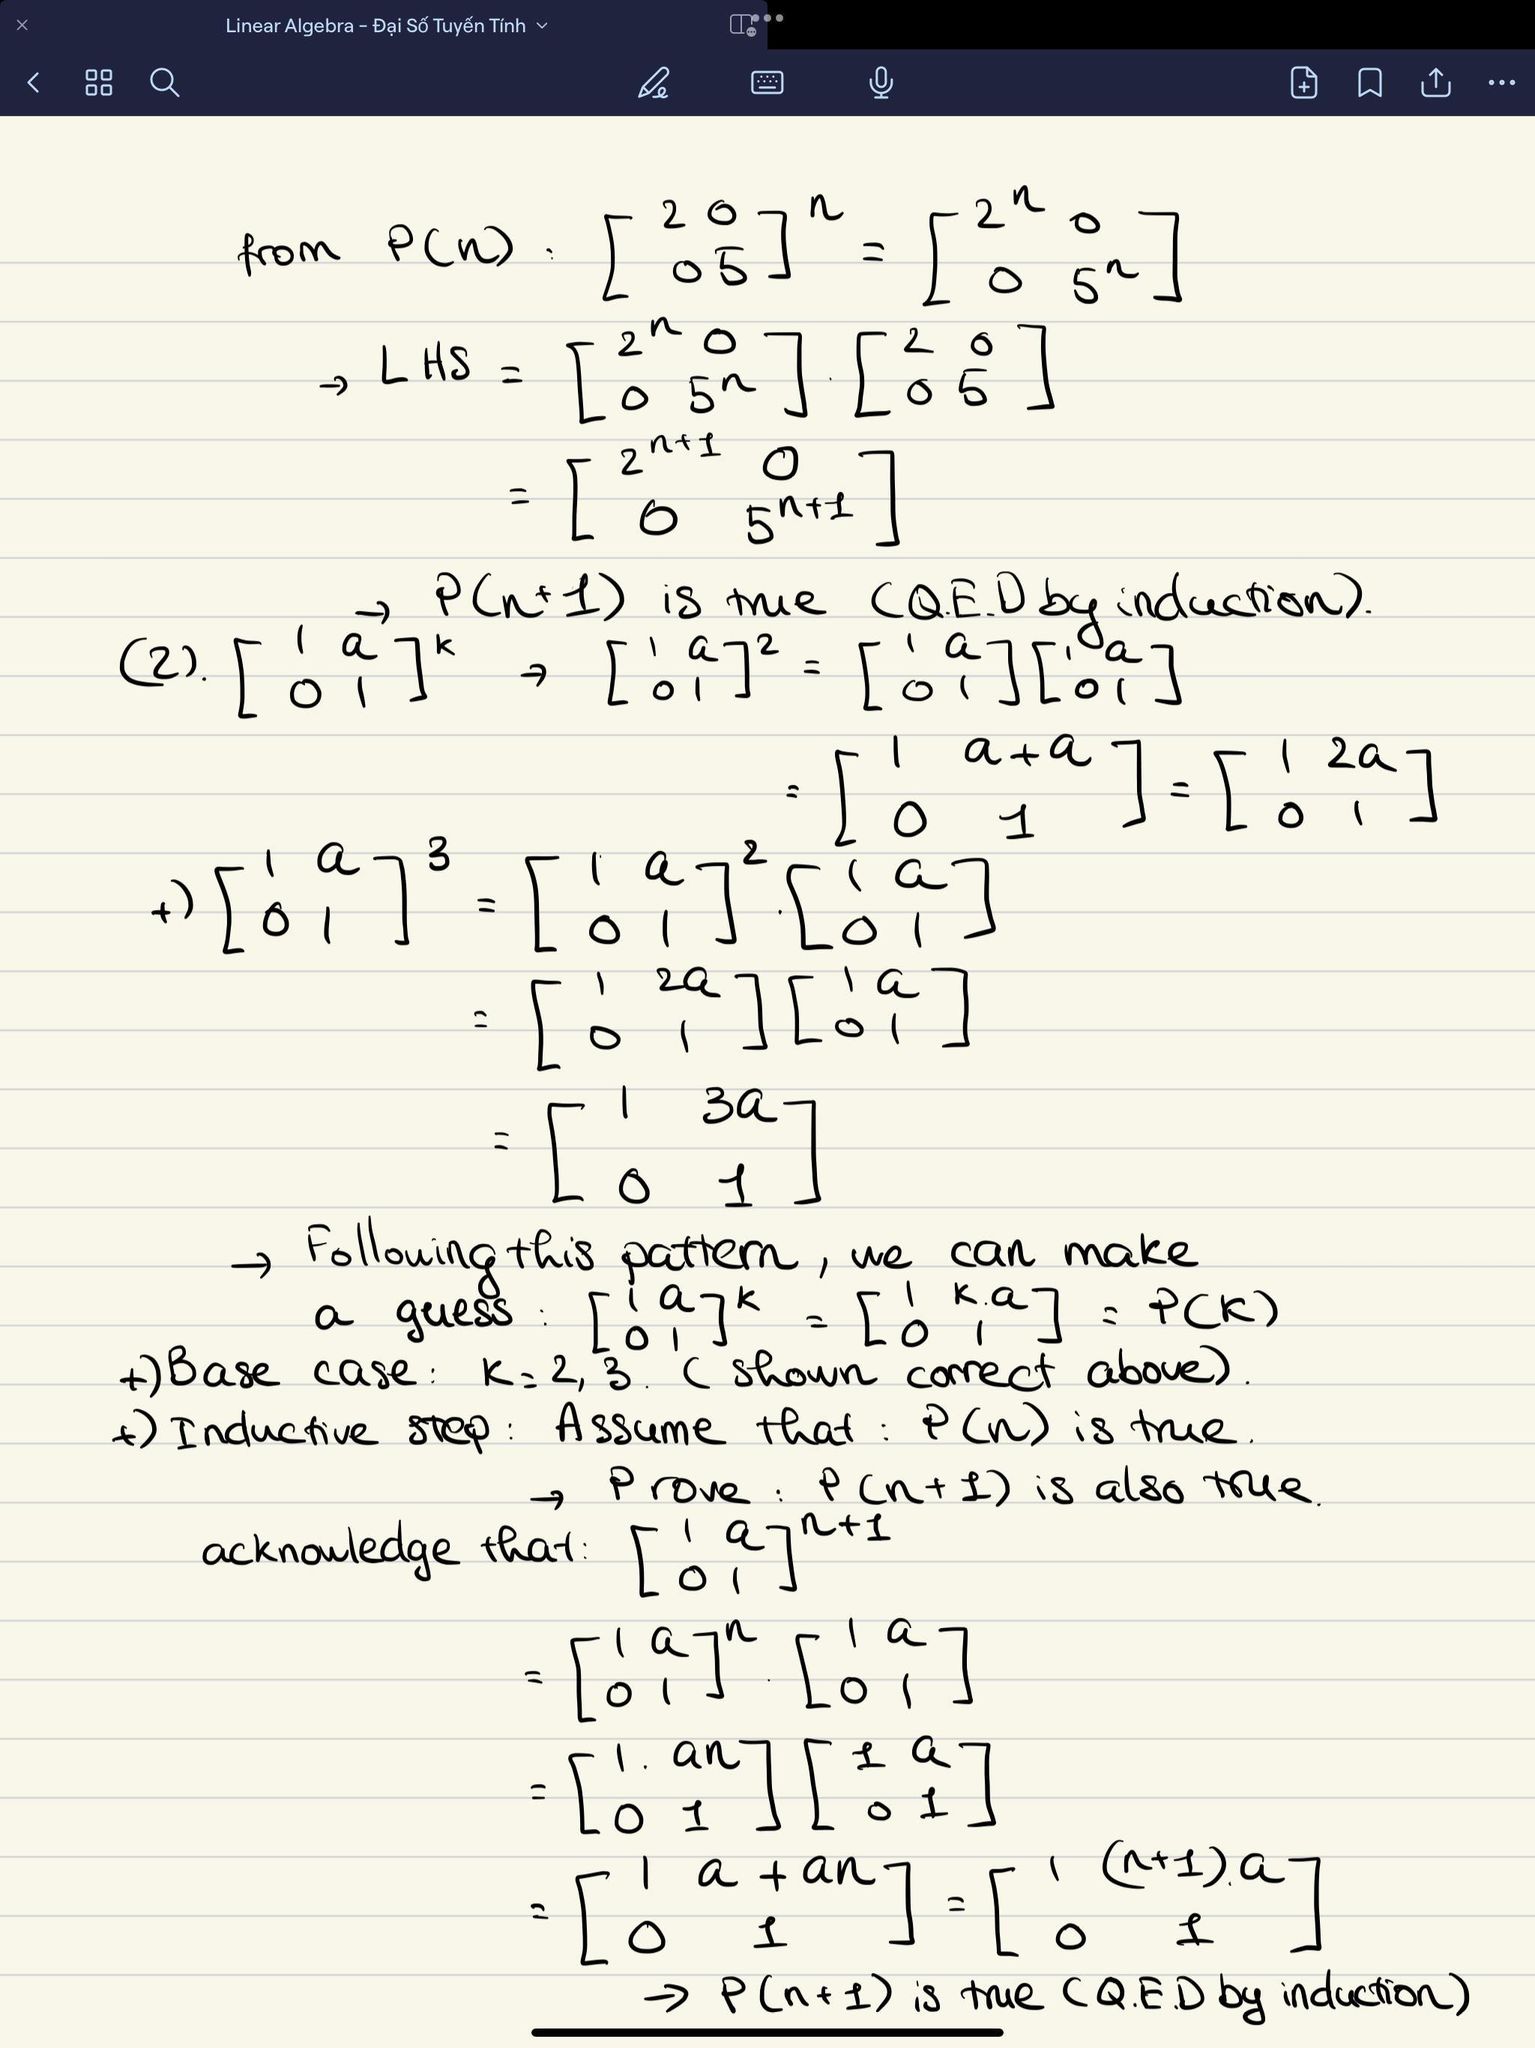 Linear Algebra - Đại Số Tuyến Tính
from P(n) : [2 0; 0 5]^n = [2^n 0; 0 5^n]
→ LHS = [2^n 0; 0 5^n] . [2 0; 0 5]
= [2^(n+1) 0; 0 5^(n+1)]
→ P(n+1) is true (Q.E.D by induction).
(2). [1 a; 0 1]^k → [1 a; 0 1]^2 = [1 a; 0 1] [1 a; 0 1]
= [1 a+a; 0 1] = [1 2a; 0 1]
+) [1 a; 0 1]^3 = [1 a; 0 1]^2 . [1 a; 0 1]
= [1 2a; 0 1] [1 a; 0 1]
= [1 3a; 0 1]
→ Following this pattern, we can make
a guess : [1 a; 0 1]^k = [1 k.a; 0 1] = P(k)
+) Base case: k = 2, 3. (shown correct above).
+) Inductive step: Assume that: P(n) is true.
→ Prove : P(n+1) is also true.
acknowledge that: [1 a; 0 1]^(n+1)
= [1 a; 0 1]^n . [1 a; 0 1]
= [1. an; 0 1] [1 a; 0 1]
= [1 a+an; 0 1] = [1 (n+1).a; 0 1]
→ P(n+1) is true (Q.E.D by induction)